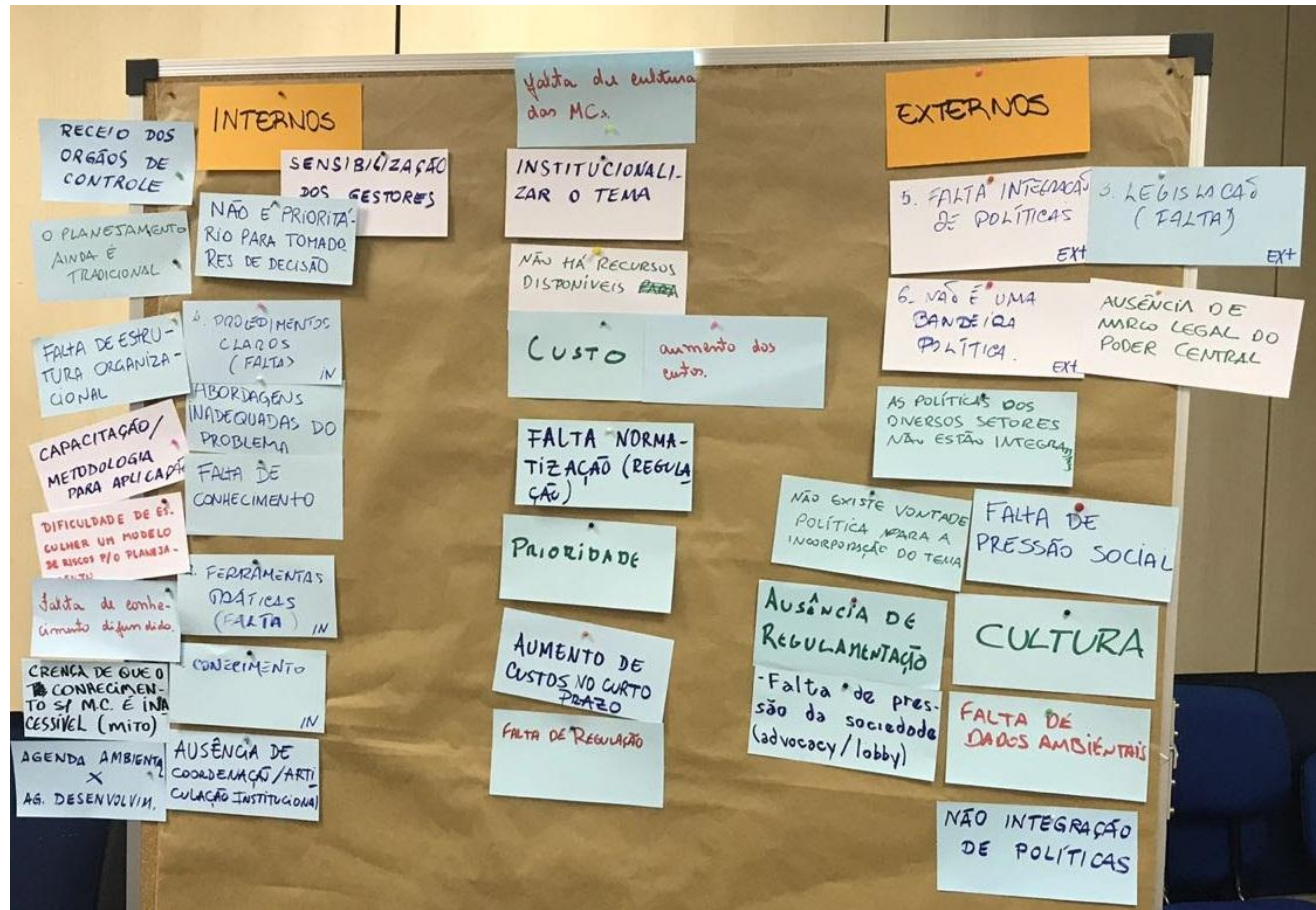 RECEIO DOS
ORGÃOS DE
CONTROLE
INTERNOS
SENSIBILIZAÇÃO
DOS GESTORES
O PLANEJAMENTO
AINDA É
TRADICIONAL
NÃO É PRIORITÁ-
RIO PARA TOMADO
RES DE DECISÃO
FALTA DE ESTRU-
TURA ORGANIZA-
CIONAL
4. PROCEDIMENTOS
CLAROS
(FALTA)
IN
ABORDAGENS
INADEQUADAS DO
PROBLEMA
CAPACITAÇÃO/
METODOLOGIA
PARA APLICAÇÃO
FALTA DE
CONHECIMENTO
DIFICULDADE DE ES-
COLHER UM MODELO
DE RISCOS P/O PLANEJA-
FERRAMENTAS
PRÁTICAS
(FALTA)
IN
falta de conhe-
cimento difundido.
CONECIMENTO
IN
CRENÇA DE QUE O
CONHECIMEN-
TO S/ M.C. É INA
CESSÍVEL (mito)
AGENDA AMBIENTAL
X
AG. DESENVOLVIM.
AUSÊNCIA DE
COORDENAÇÃO/ARTI
CULAÇÃO INSTITUCIONAL
falta de cultura
das MCs.
INSTITUCIONALI-
ZAR O TEMA
NÃO HÁ RECURSOS
DISPONÍVEIS PARA
CUSTO
aumento dos
custos.
FALTA NORMA-
TIZAÇÃO (REGULA
ÇÃO)
PRIORIDADE
AUMENTO DE
CUSTOS NO CURTO
PRAZO
FALTA DE REGULAÇÃO
EXTERNOS
5. FALTA INTEGRAÇÃO
DE POLÍTICAS
EXT
3. LEGISLACÃO
(FALTA)
EXT
6. NÃO É UMA
BANDEIRA
POLÍTICA.
EXT
AUSÊNCIA DE
MARCO LEGAL DO
PODER CENTRAL
AS POLÍTICAS DOS
DIVERSOS SETORES
NÃO ESTÃO INTEGRADAS
NÃO EXISTE VONTADE
POLÍTICA PARA A
INCORPORAÇÃO DO TEMA
FALTA DE
PRESSÃO SOCIAL
AUSÊNCIA DE
REGULAMENTAÇÃO
CULTURA
-Falta de pres-
são da sociedade
(advocacy/lobby)
FALTA DE
DADOS AMBIENTAIS
NÃO INTEGRAÇÃO
DE POLÍTICAS